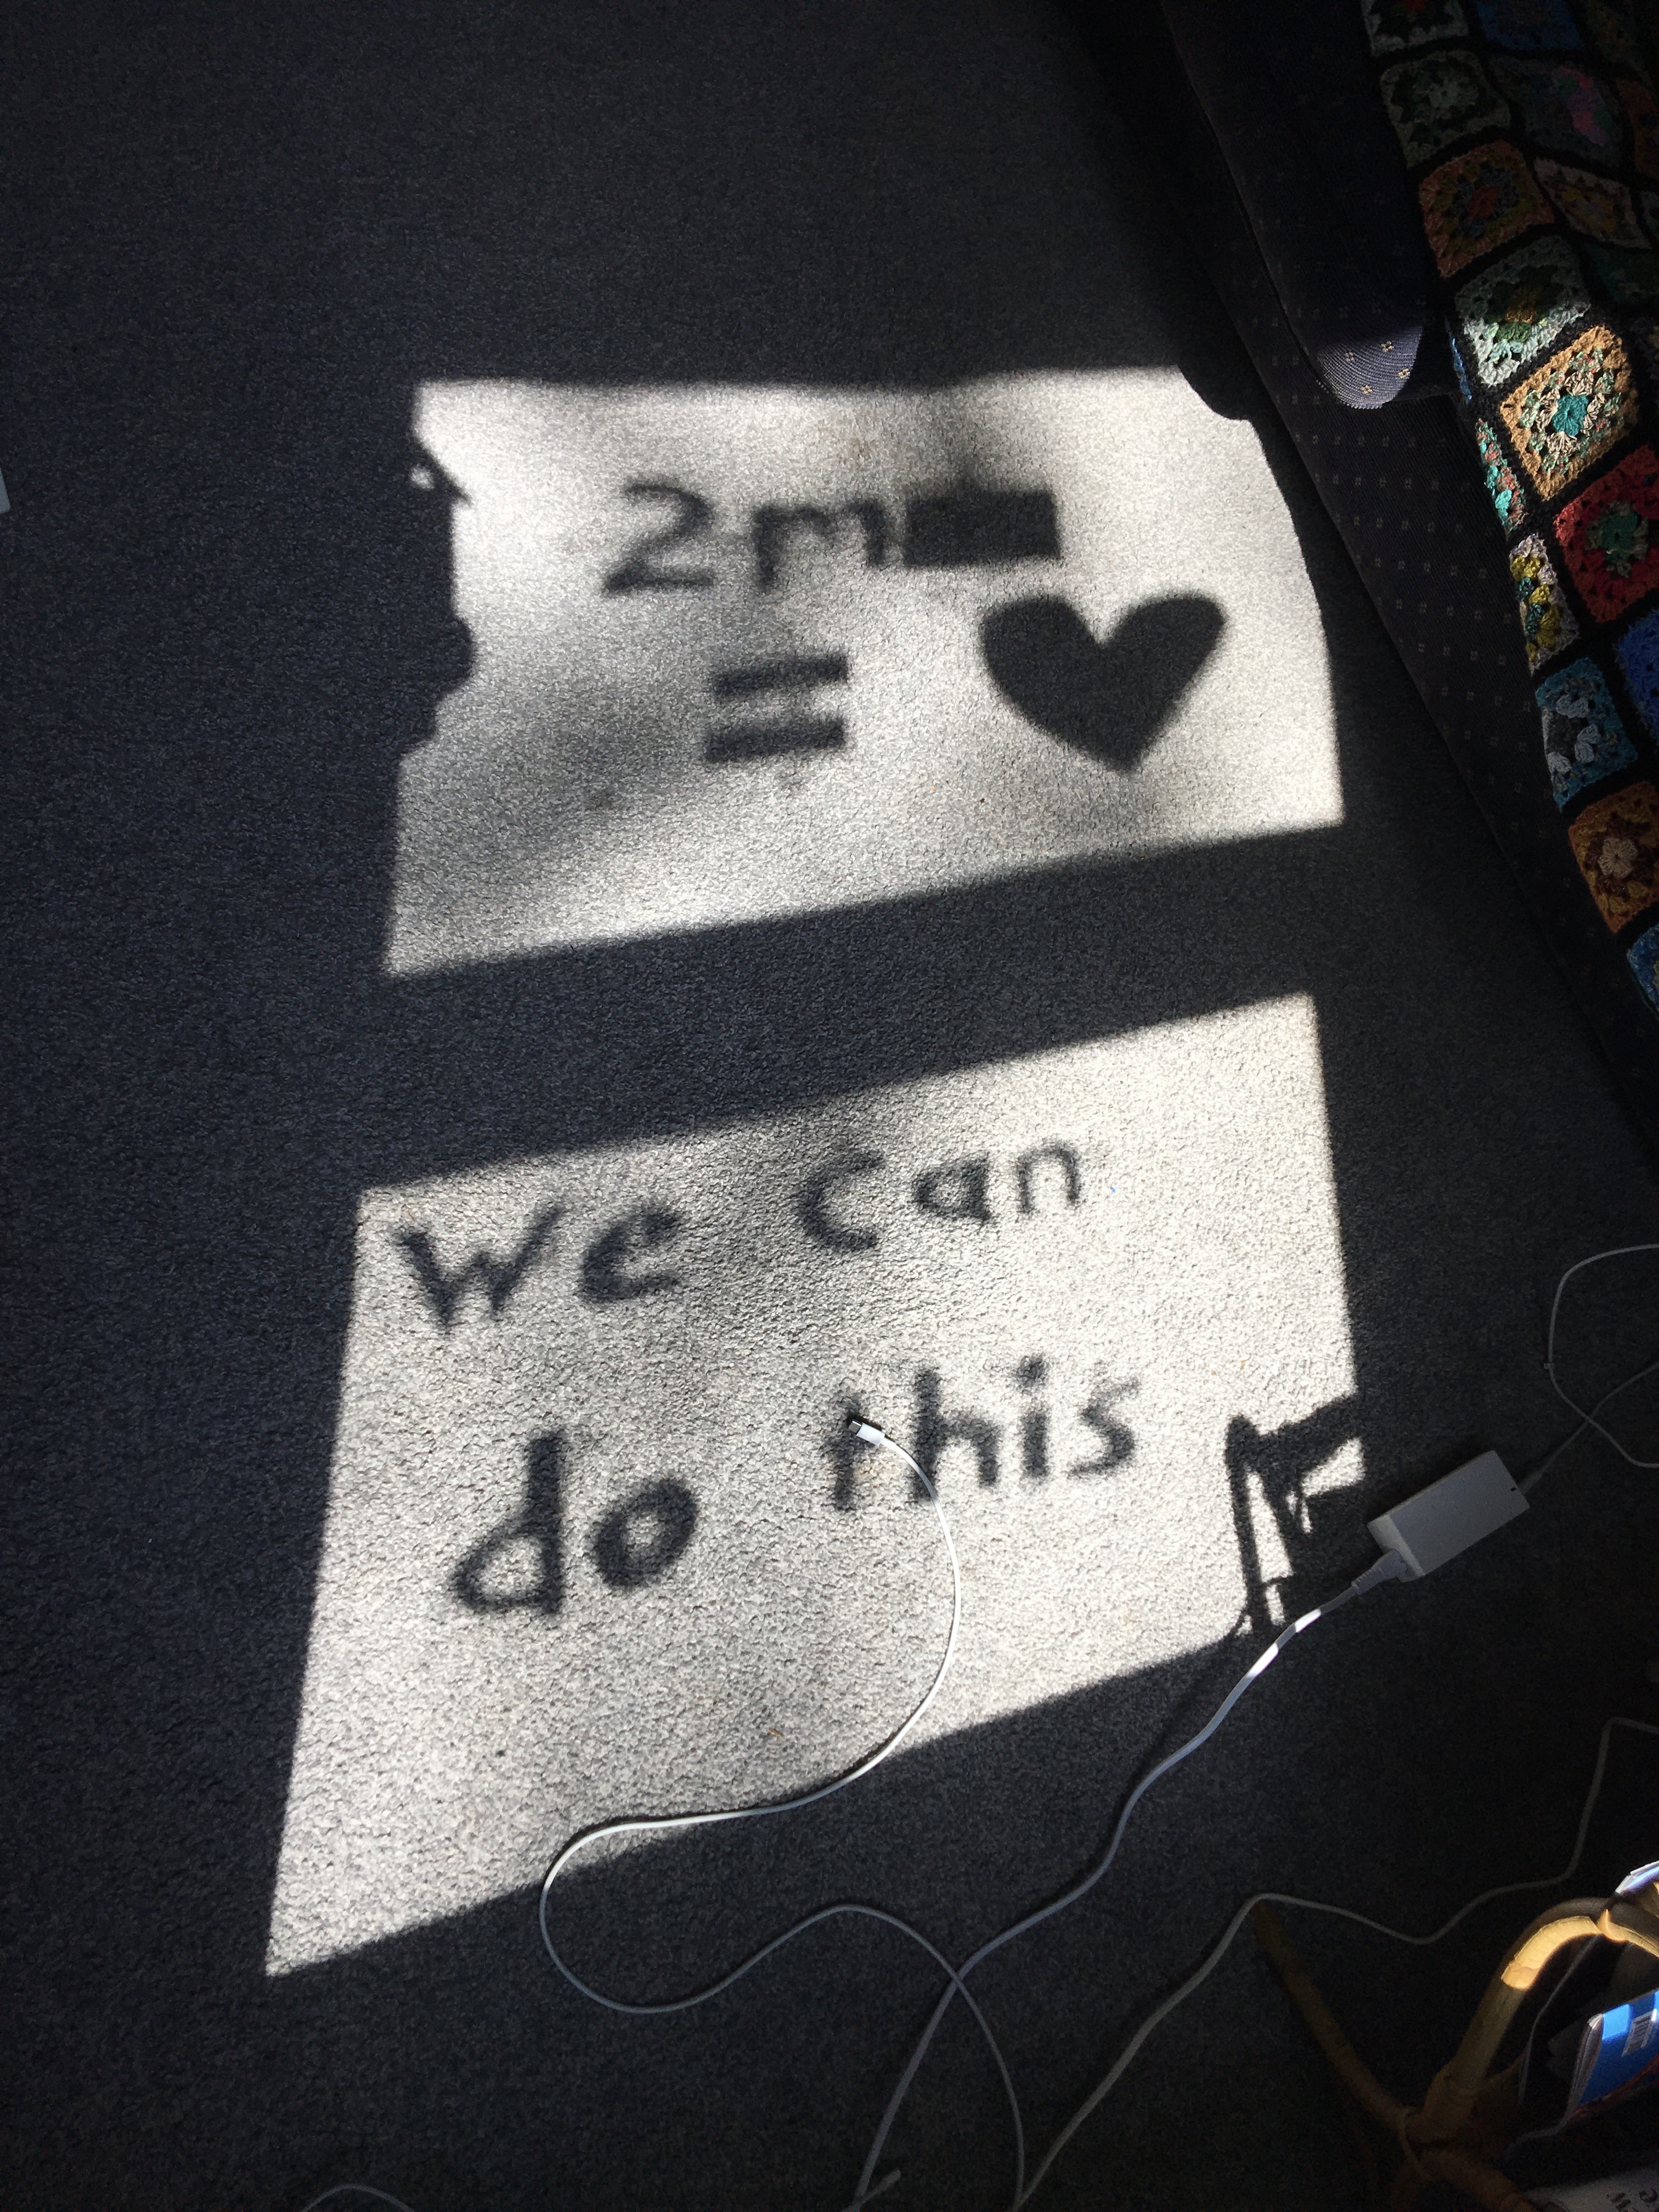 2m
= ♥
we can
do this